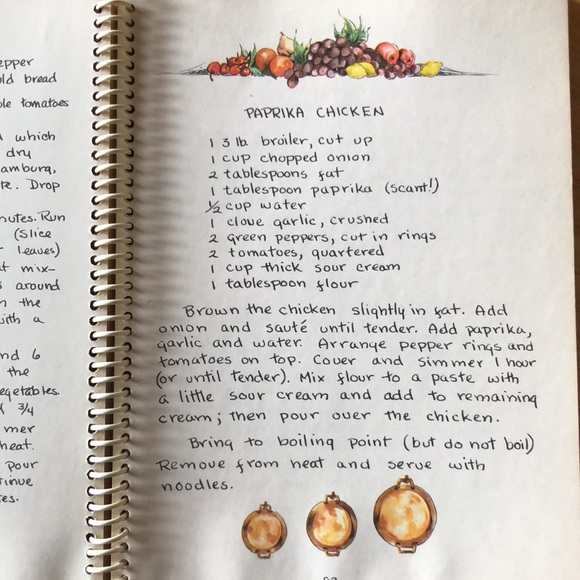 epper
ld bread
tomatoes
which
dry
amburg,
Drop
nutes. Run
(Slice
leaves)
mix-
around
the
ith a
nd 6
the
egetables.
3/4
mer
heat.
pour
tinue
tes.
PAPRIKA CHICKEN
1 3 lb. broiler, cut up
1 cup chopped onion
2 tablespoons fat
1 tablespoon paprika (scant!)
½ cup water
1 clove garlic, crushed
2 green peppers, cut in rings
2 tomatoes, quartered
1 cup thick sour cream
1 tablespoon flour
Brown the chicken slightly in fat. Add
onion and sauté until tender. Add paprika,
garlic and water. Arrange pepper rings and
tomatoes on top. Cover and simmer 1 hour
(or until tender). Mix flour to a paste with
a little sour cream and add to remaining
cream; then pour over the chicken.
Bring to boiling point (but do not boil)
Remove from heat and serve with
noodles.